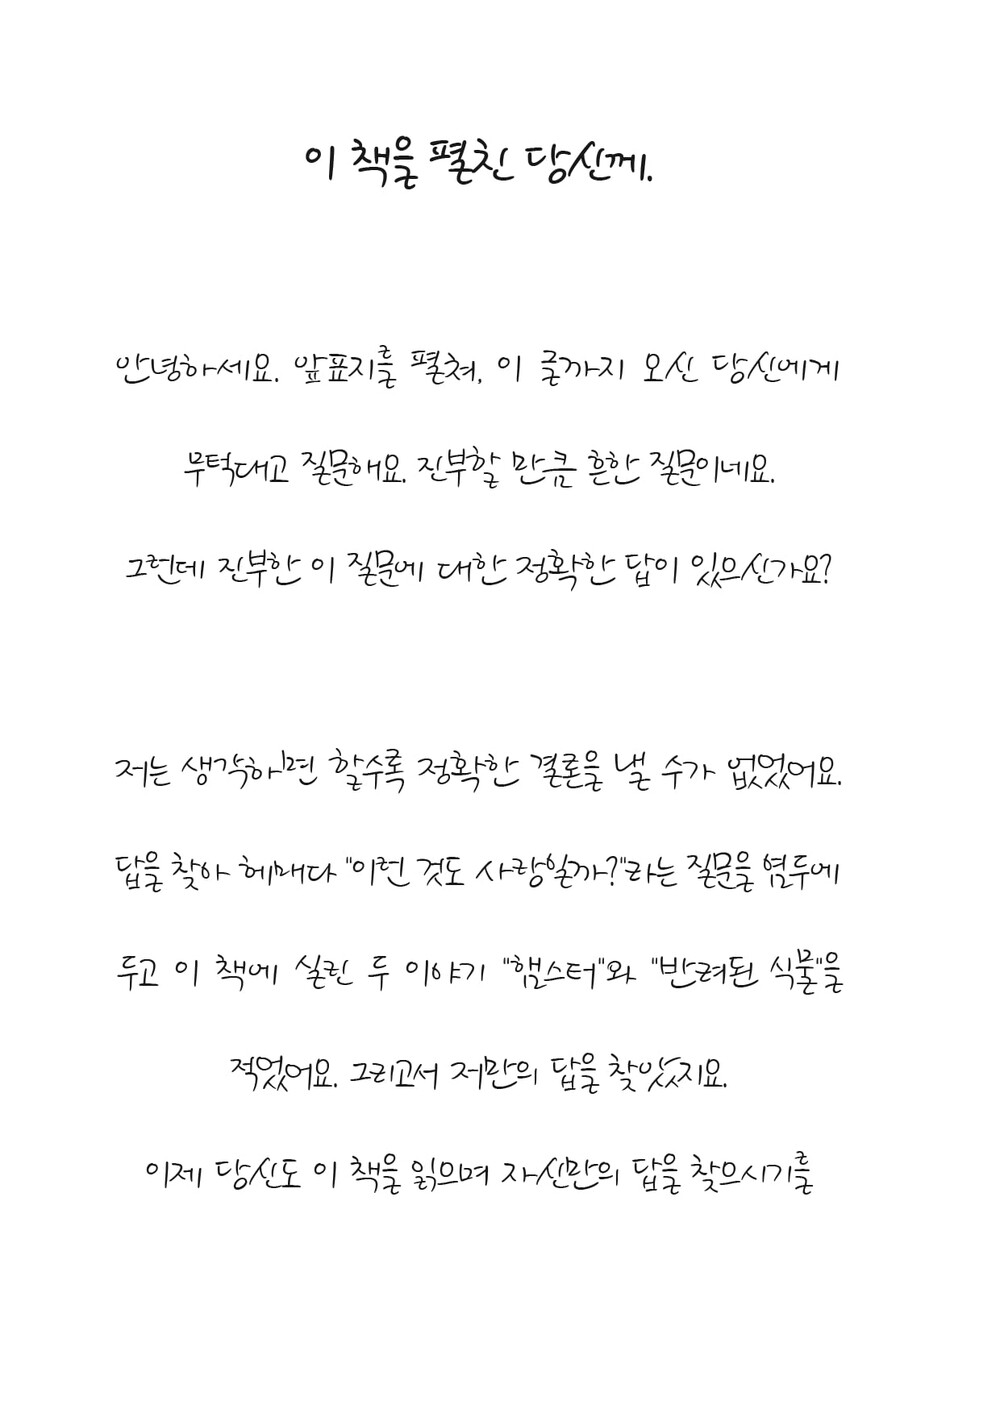 이 책을 펼친 당신께.
안녕하세요. 앞표지를 펼쳐, 이 글까지 오신 당신에게
무턱대고 질문해요. 진부할 만큼 흔한 질문이네요.
그런데 진부한 이 질문에 대한 정확한 답이 있으신가요?
저는 생각하면 할수록 정확한 결론을 낼 수가 없었어요.
답을 찾아 헤매다 "이런 것도 사랑일까?"라는 질문을 염두에
두고 이 책에 실린 두 이야기 "햄스터"와 "반려된 식물"을
적었어요. 그리고서 저만의 답을 찾았지요.
이제 당신도 이 책을 읽으며 자신만의 답을 찾으시기를